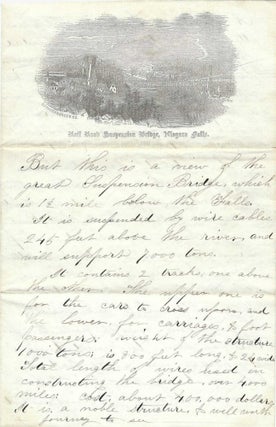 Rail Road Suspension Bridge, Niagara Falls.
But this is a view of the
great Suspension Bridge, which
is 1½ mile below the Falls.
It is suspended by wire cables
245 feet above the river, and
will support 7000 tons.
It contains 2 tracks, one above
the other. The upper one is
for the cars to cross upon, and
the lower, for carriages, & foot
passengers. weight of the structure
1000 tons, is 800 feet long, & 24 wide
Total length of wires used in
constructing the bridge, over 4000
miles: cost, about 400,000 dollars.
It is a noble structure, & well worth
journey to see